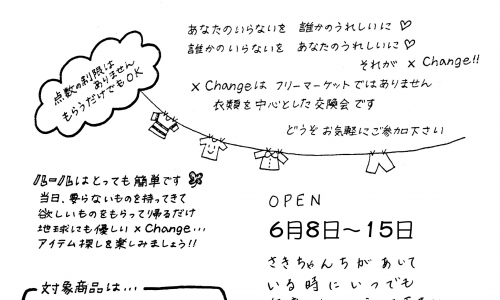 あなたのいらないを 誰かのうれしいに♡
誰かのいらないを あなたのうれしいに♡
それが × Change!!
点数の制限は
ありません
もらうだけでもOK
× Changeは フリーマーケットではありません
衣類を中心とした交換会です
どうぞお気軽にご参加下さい
ルールはとっても簡単です
当日、要らないものを持ってきて
欲しいものをもらって帰るだけ
地球にも優しい × Change…
アイテム探しを楽しみましょう!!
OPEN
6月8日〜15日
さきちゃんちがあいて
いる時にいつでも
対象商品は…